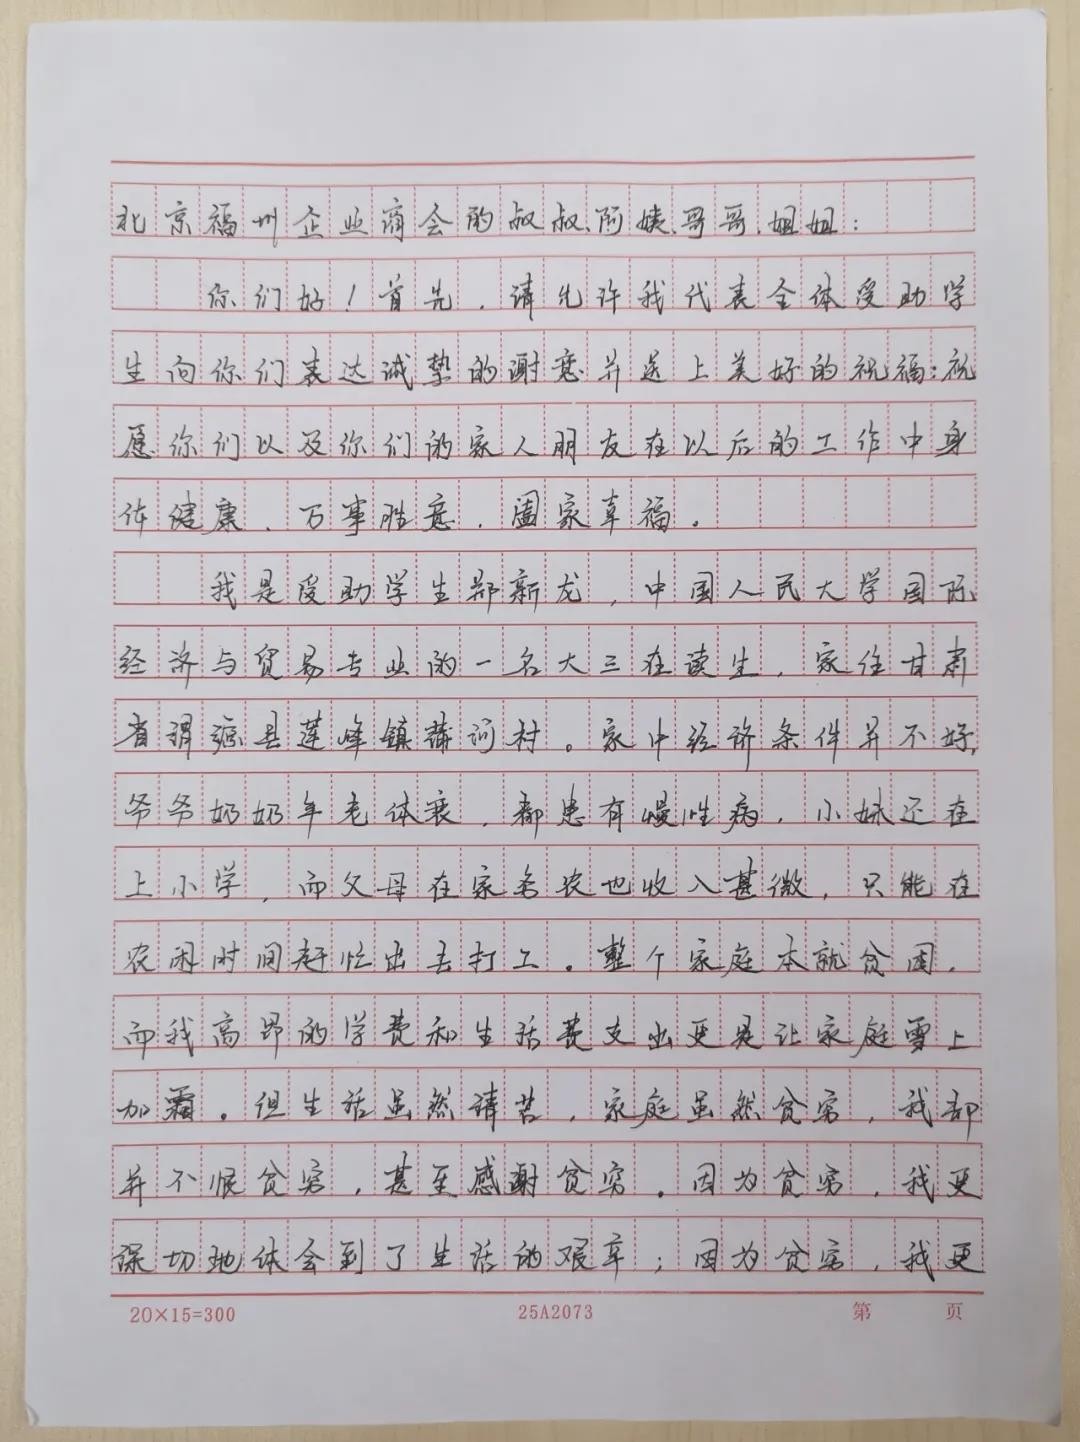 北京福州企业商会的叔叔、阿姨、哥哥、姐姐：
你们好！首先，请允许我代表全体受助学
生向你们表达诚挚的谢意并送上美好的祝福：祝
愿你们以及你们的家人朋友在以后的工作中身
体健康、万事胜意、阖家幸福。
我是受助学生郑新龙，中国人民大学国际
经济与贸易专业的一名大三在读生，家住甘肃
省渭源县莲峰镇河村。家中经济条件并不好，
爷爷奶奶年老体衰，都患有慢性病，小妹还在
上小学，而父母在家务农也收入甚微，只能在
农闲时间赶忙出去打工。整个家庭本就贫困，
而我高昂的学费和生活费支出更是让家庭雪上
加霜。但生活虽然清苦，家庭虽然贫穷，我却
并不恨贫穷，甚至感谢贫穷。因为贫穷，我更
深切地体会到了生活的艰辛；因为贫穷，我更
20×15=300 25A2073 第 页